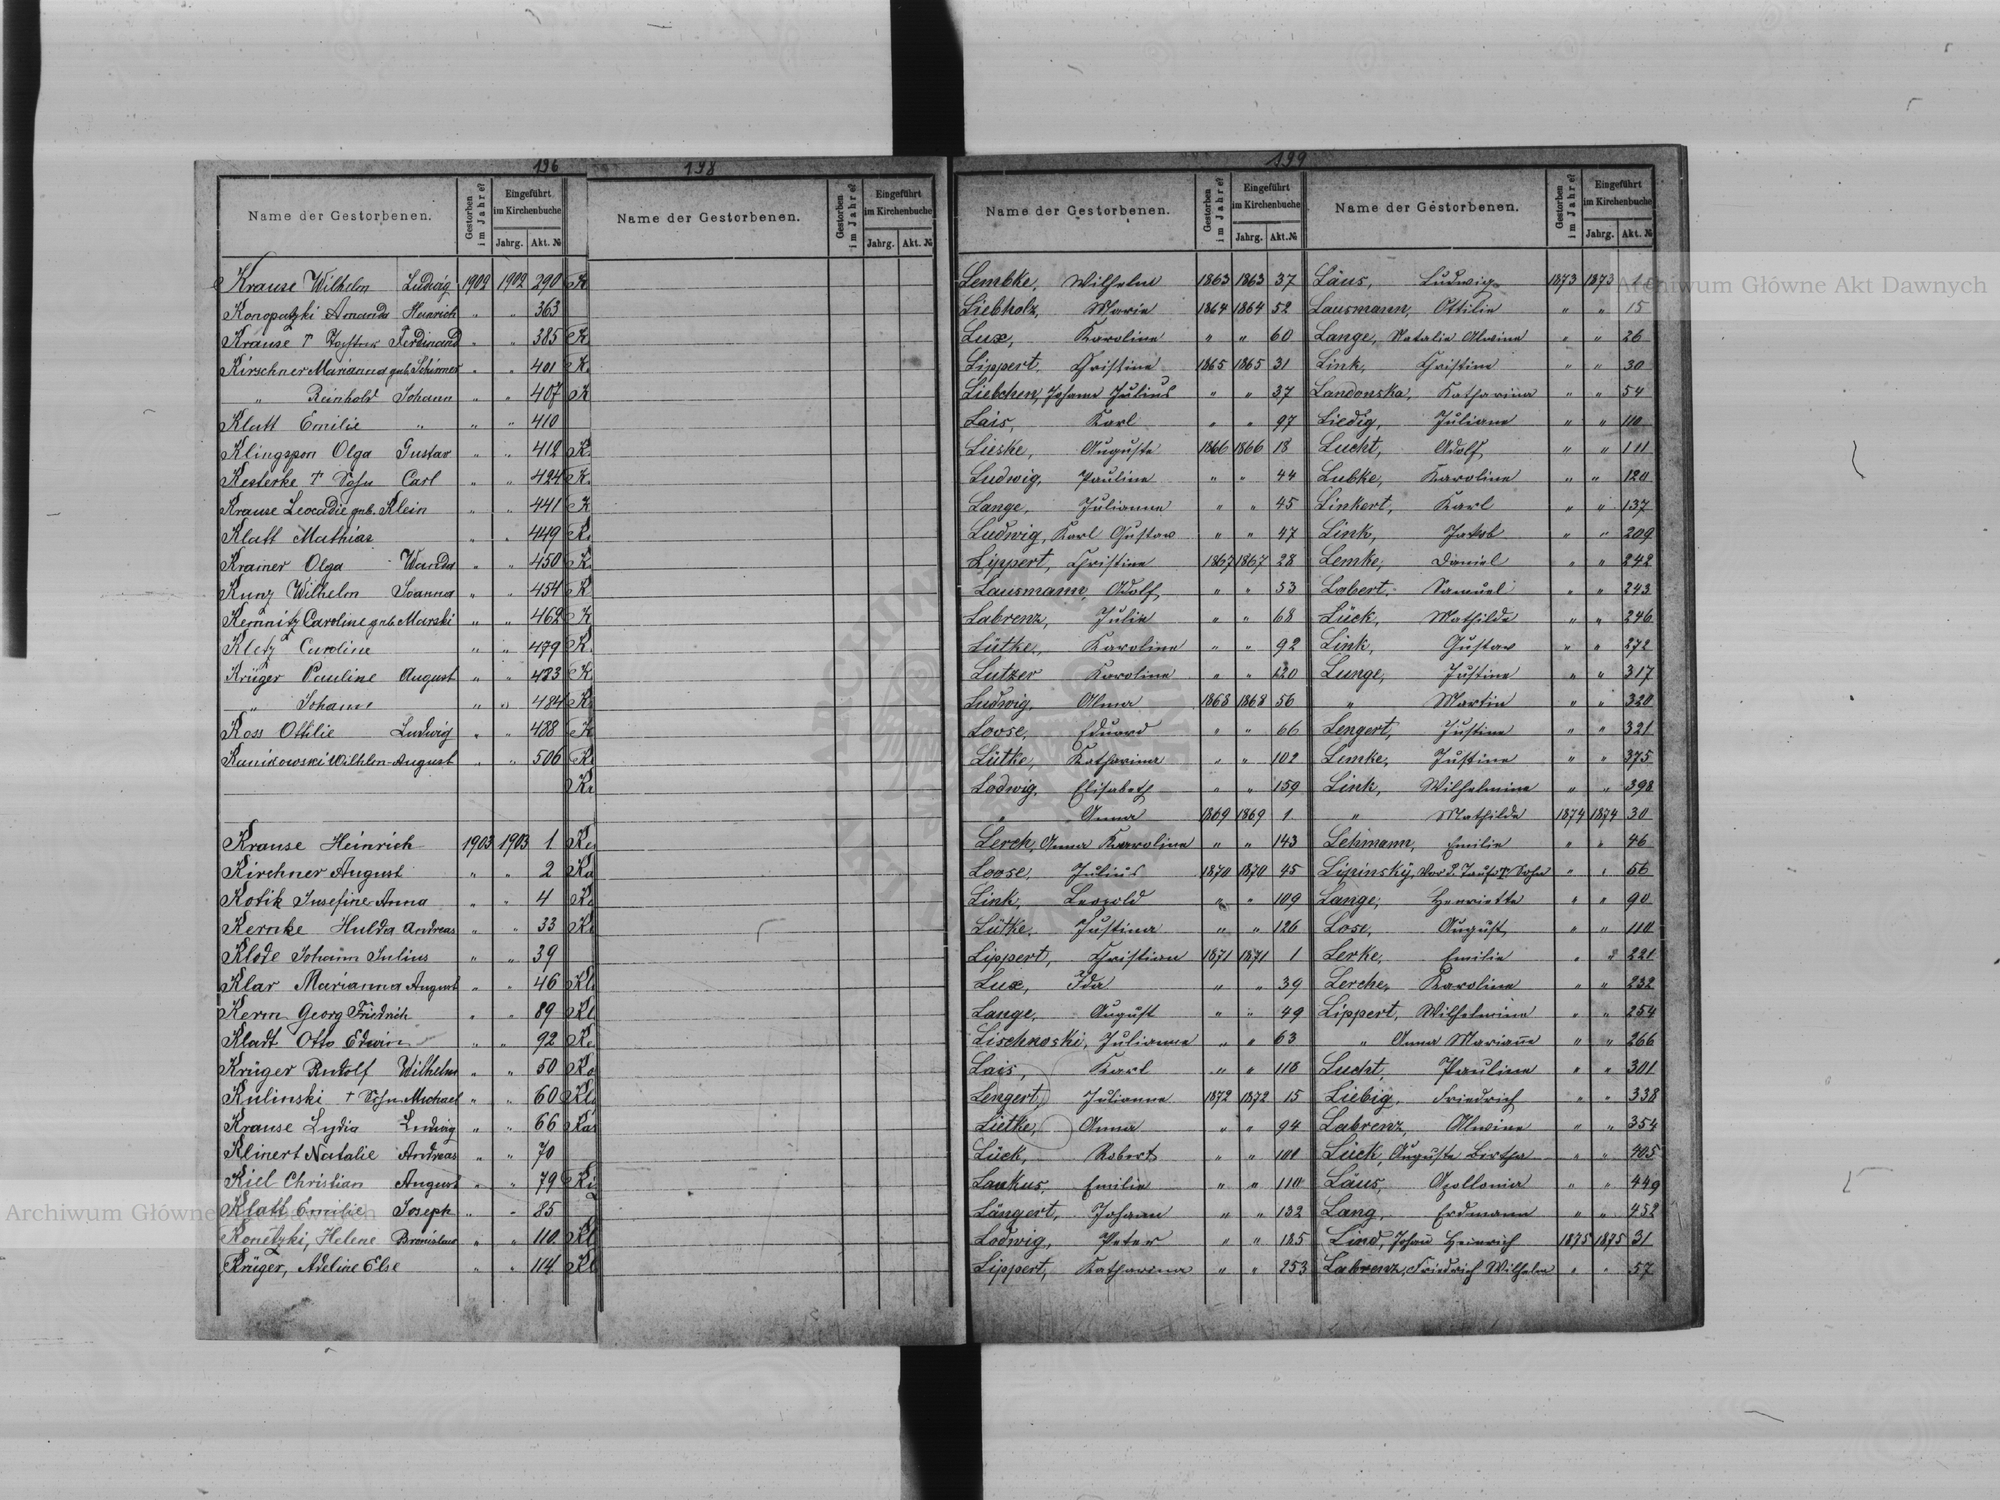 196
Name der Gestorbenen. Gestorben im Jahre? Eingeführt im Kirchenbuche Jahrg. Akt. №
Krause Wilhelm Ludwig 1902 1902 290 K
Konopatzki Amanda Heinrich " " 363
Krause † Tochter Ferdinand " " 385 K
Kirschner Marianna geb. Schirmer " " 401 K
" Reinhold Johann " " 407 K
Klatt Emilie " " " 410
Klingspon Olga Gustav " " 412 K
Kesterke † Sohn Carl " " 424 K
Krause Leocadie geb. Klein " " 441 K
Klatt Mathias " " 449 K
Kramer Olga Wanda " " 450 K
Kunz Wilhelm Joanna " " 454 K
Kemnitz Caroline geb. Marski " " 462 K
Kletz Caroline " " 479 K
Krüger Pauline August " " 483 K
" Johann " " 484 K
Koss Ottilie Ludwig " " 488 K
Kunikowski Wilhlm August " " 506 K
Krause Heinrich 1903 1903 1
Kirchner August " " 2 Ka
Kotik Josefine Anna " " 4
Kernke Hulda Andreas " " 33
Klode Johann Julius " " 39
Klar Marianna August " " 46 Kl
Kerm Georg Friedrich " " 89 Kl
Kladt Otto Edwin " " 92
Krüger Rudolf Wilhelm " " 50 Ko
Kulinski † Sohn Michael " " 60 Kl
Krause Lydia Ludwig " " 66 Kas
Klinert Natalie Andreas " " 70
Kiel Christian August " " 79
Klatt Emilie Joseph " " 85
Konetzki, Helene Bronislaw " " 110 Kl
Krüger, Adeline Else " " 114 Kl
198
Name der Gestorbenen. Gestorben im Jahre? Eingeführt im Kirchenbuche Jahrg. Akt. №
199
Name der Gestorbenen. Gestorben im Jahre? Eingeführt im Kirchenbuche Jahrg. Akt. №
Lembke, Wilhelm 1863 1863 37
Liebholz, Marie 1864 1864 52
Lux, Karoline " " 60
Lippert, Christine 1865 1865 31
Liebchen, Johann Julius " " 37
Lais, Karl " " 97
Lieske, Auguste 1866 1866 18
Ludwig, Pauline " " 44
Lange, Julianna " " 45
Ludwig, Karl Gustav " " 47
Lippert, Christine 1867 1867 28
Lausmann, Adolf " " 53
Labrenz, Julie " " 68
Lütke, Karoline " " 92
Lutzer Karoline " " 120
Ludwig, Alma 1868 1868 56
Loose, Eduard " " 66
Lütke, Katharina " " 102
Lodwig, Elisabeth " " 159
" Anna 1869 1869 1
Lerch, Anna Karoline " " 143
Loose, Julius 1870 1870 45
Link, Leopold " " 109
Lütke, Justina " " 126
Lippert, Christian 1871 1871 1
Lux, Ida " " 39
Lange, August " " 49
Lischnoski, Julianna " " 63
Lais, Karl " " 118
Lengert, Julianna 1872 1872 15
Lietke, Anna " " 94
Lück, Robert " " 101
Laukus, Emilie " " 110
Längert, Johann " " 132
Lodwig, Peter " " 185
Lippert, Katharina " " 253
Name der Gestorbenen. Gestorben im Jahre? Eingeführt im Kirchenbuche Jahrg. Akt. №
Läus, Ludwig 1873 1873 1
Lausmann, Ottilie " " 15
Lange, Natalie Alwine " " 26
Link, Christine " " 30
Landonska, Katharina " " 54
Liedig, Juliane " " 110
Lucht, Adolf " " 111
Lubke, Karoline " " 120
Linkert, Karl " " 137
Link, Jakob " " 209
Lemke, Daniel " " 242
Labert, Samuel " " 243
Lück, Mathilde " " 246
Link, Gustav " " 272
Lange, Justine " " 317
" Martin " " 320
Lengert, Justine " " 321
Lemke, Justine " " 375
Link, Wilhelmine " " 398
" Mathilde 1874 1874 30
Lehmann, Emilie " " 46
Lipinsky, Vor d. Taufe † Sohn " " 56
Lange, Henriette " " 90
Lose, August " " 110
Lerke, Emilie " " 221
Lerche, Karoline " " 232
Lippert, Wilhelmine " " 254
" Anna Marianne " " 266
Lucht, Pauline " " 301
Liebig, Friedrich " " 338
Labrenz, Alwine " " 354
Lück, Auguste Bertha " " 405
Läus, Apollonia " " 449
Lang, Erdmann " " 452
Lind, Johan Heinrich 1875 1875 31
Labrenz, Friedrich Wilhelm " " 57
Archiwum Główne Akt Dawnych
Archiwum Główne Akt Dawnych